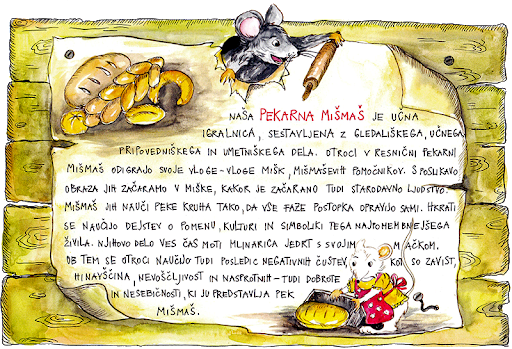 NAŠA PEKARNA MIŠMAŠ JE UČNA
IGRALNICA, SESTAVLJENA Z GLEDALIŠKEGA, UČNEGA,
PRIPOVEDNIŠKEGA IN UMETNIŠKEGA DELA. OTROCI V RESNIČNI PEKARNI
MIŠMAŠ ODIGRAJO SVOJE VLOGE - VLOGE MIŠK, MIŠMAŠEVIH POMOČNIKOV. S POSLIKAVO
OBRAZA JIH ZAČARAMO V MIŠKE, KAKOR JE ZAČARANO TUDI STARODAVNO LJUDSTVO.
MIŠMAŠ JIH NAUČI PEKE KRUHA TAKO, DA VSE FAZE POSTOPKA OPRAVIJO SAMI. HKRATI
SE NAUČIJO DEJSTEV O POMENU, KULTURI IN SIMBOLIKI TEGA NAJPOMEMBNEJŠEGA
ŽIVILA. NJIHOVO DELO VES ČAS MOTI MLINARICA JEDRT S SVOJIM MAČKOM.
OB TEM SE OTROCI NAUČIJO TUDI POSLEDIC NEGATIVNIH ČUSTEV, KOT SO ZAVIST,
HINAVŠČINA, NEVOŠČLJIVOST IN NASPROTNIH - TUDI DOBROTE
IN NESEBIČNOSTI, KI JU PREDSTAVLJA PEK
MIŠMAŠ.